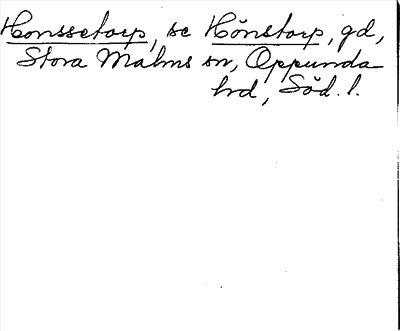 Honssetorp, se Hönstorp, gd,
Stora Malms sn, Oppunda
hd, Söd. l.